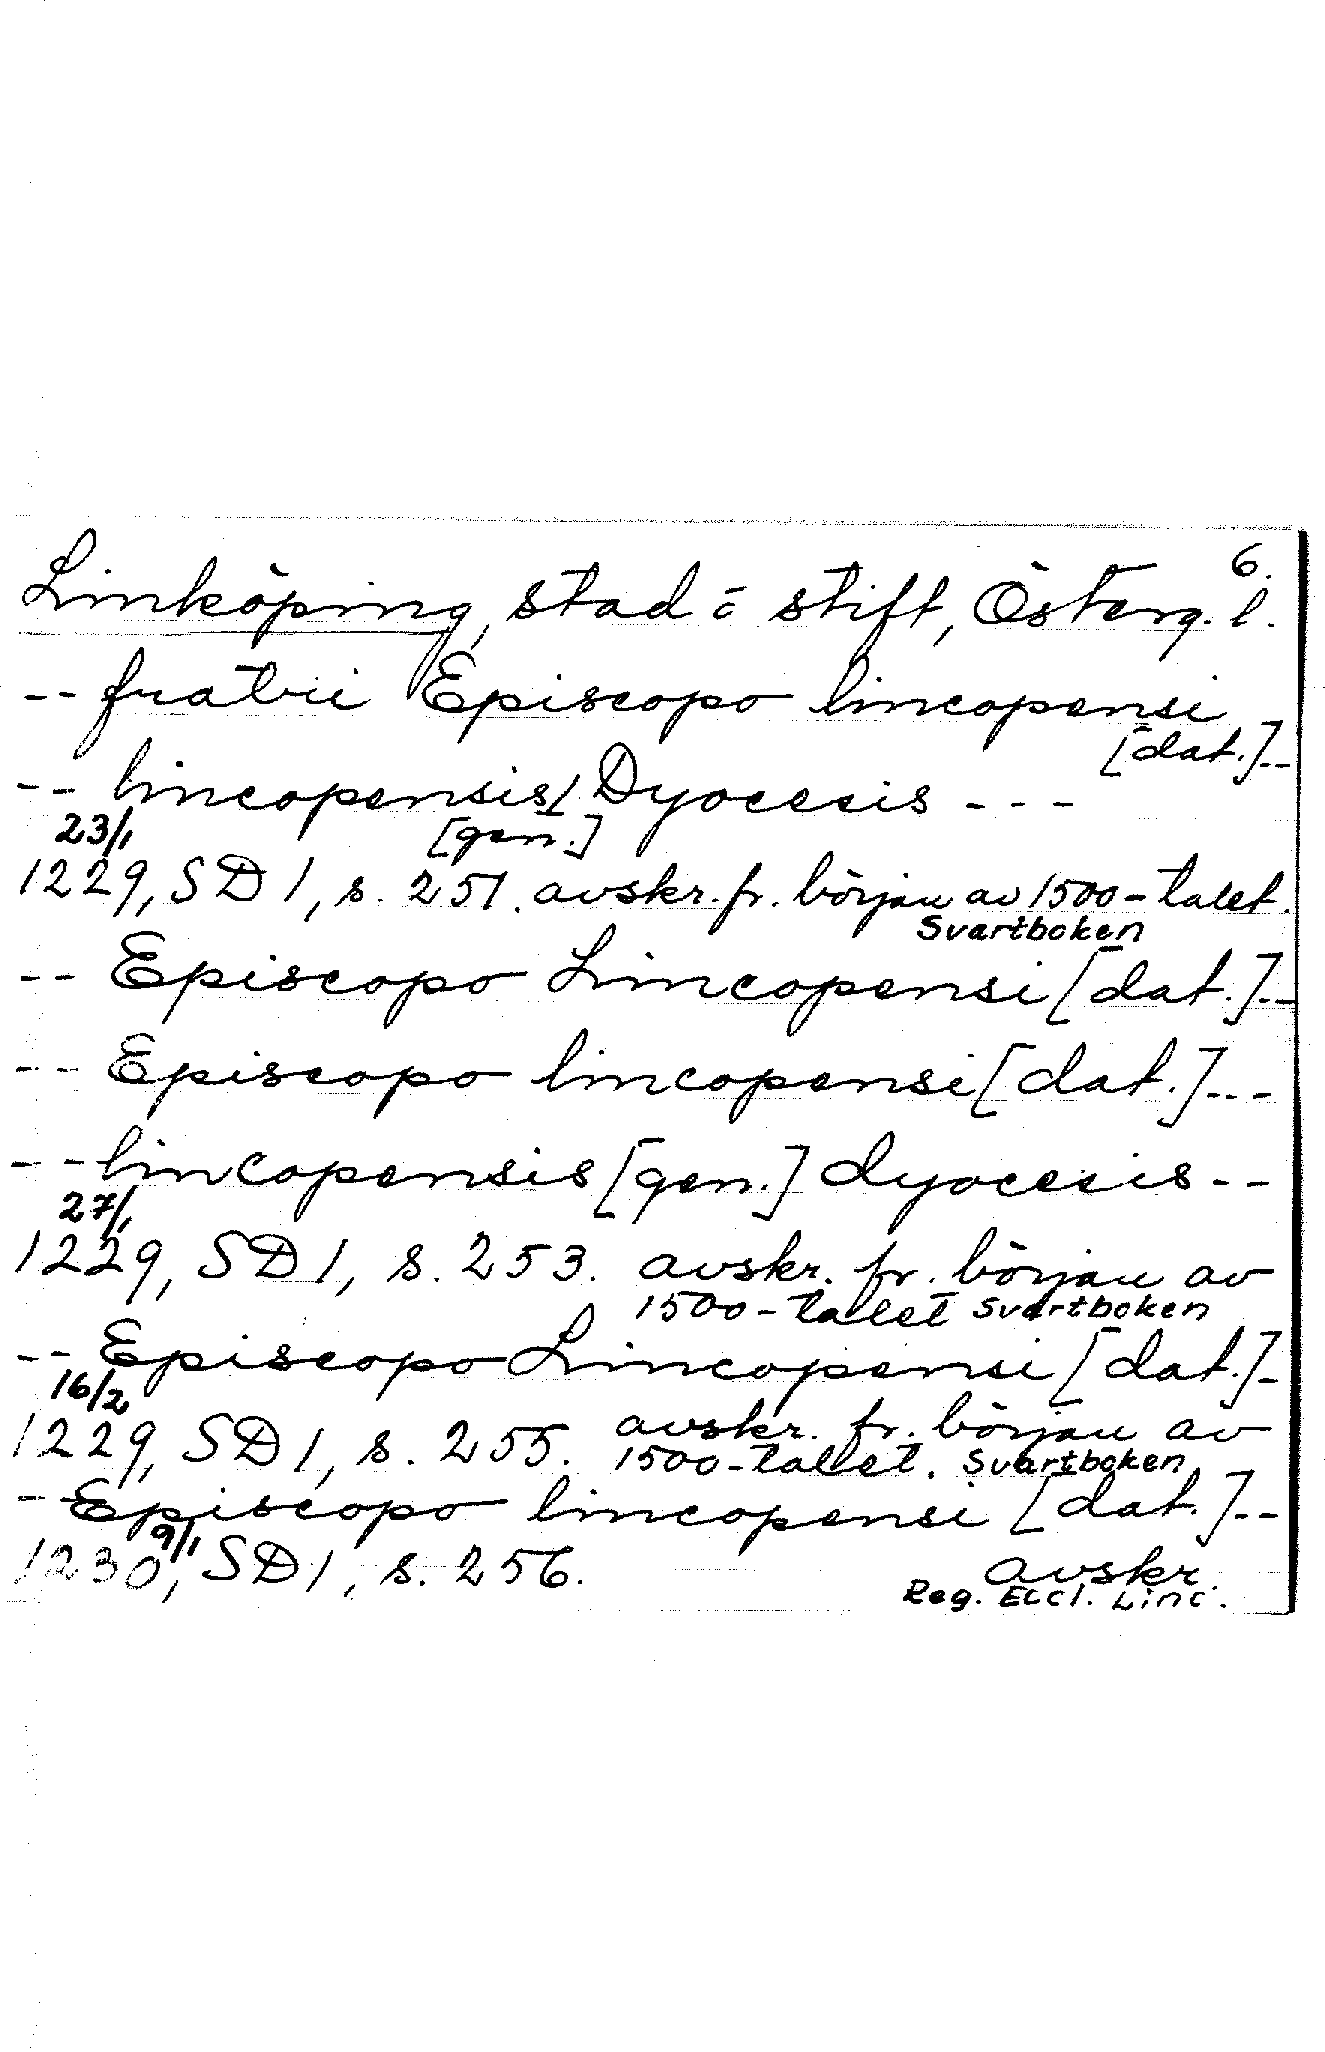 6.
Linköping, stad o stift, Österg. l.
-- fratri Episcopo lincopensi
[dat.]--
-- lincopensis/ Dyocesis ---
23/1 [gen.]
1229, SD 1, s. 251. avskr. fr. början av 1500-talet.
Svartboken
-- Episcopo Lincopensi [dat.]--
-- Episcopo lincopensi [dat.]---
-- lincopensis [gen.] dyocesis --
27/1
1229, SD 1, s. 253. avskr. fr. början av
1500-talet Svartboken
-- Episcopo Lincopensi [dat.]-
16/2
1229, SD 1, s. 255. avskr. fr. början av
1500-tallet. Svartboken
-- Episcopo lincopensi [dat.]--
9/1
1230, SD 1, s. 256. avskr.
Reg. Eccl. Linc.